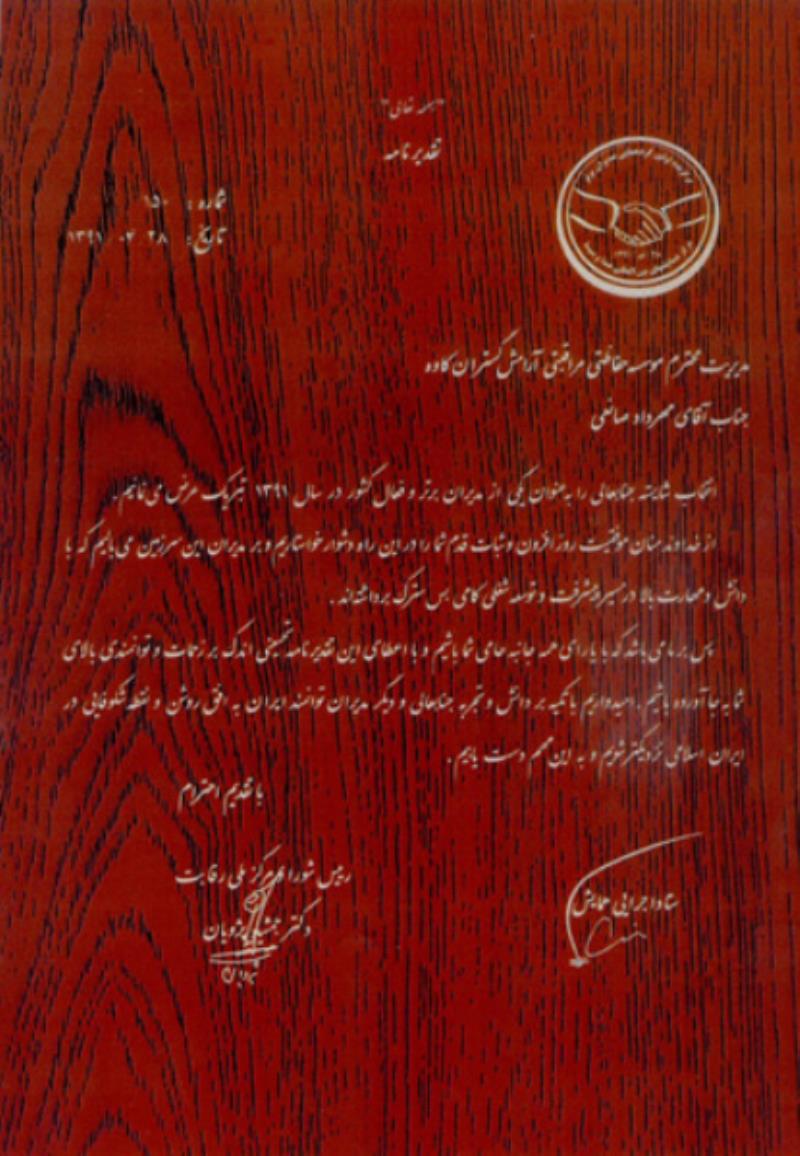 "بسمه تعالی"
تقدیر نامه
شماره : ۱۵۰
تاریخ : ۲۸ ۰۷ ۱۳۹۱
مدیریت محترم موسسه حفاظتی مراقبتی آرامش گستران کاوه
جناب آقای مهرداد صانعی
انتخاب شایسته جنابعالی را به عنوان یکی از مدیران برتر و فعال کشور در سال ۱۳۹۱ تبریک عرض می نمائیم .
از خداوند منان موفقیت روز افزون و ثبات قدم شما را در این راه دشوار خواستاریم و بر مدیران این سرزمین می بالیم که با
دانش و مهارت بالا در مسیر پیشرفت و توسعه شغلی گامی بس سترگ برداشته اند .
پس بر ما می باشد که با یارای همه جانبه حامی شما باشیم و با اعطای این تقدیر نامه تحسینی اندک بر زحمات و توانمندی بالای
شما به جا آورده باشیم . امیدواریم با تکیه بر دانش و تجربه جنابعالی و دیگر مدیران توانمند ایران به افق روشن و نقطه شکوفایی در
ایران اسلامی نزدیکتر شویم و به این مهم دست یابیم .
با تقدیم احترام
ستاد اجرایی همایش
رییس شورا و مرکز ملی رقابت
دکتر جمشید پژویان